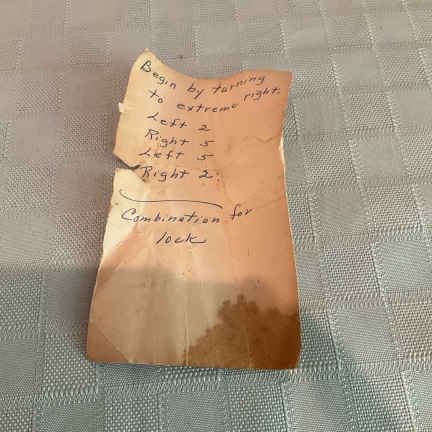 Begin by turning
to extreme right.
Left 2
Right 5
Left 5
Right 2.
Combination for
lock